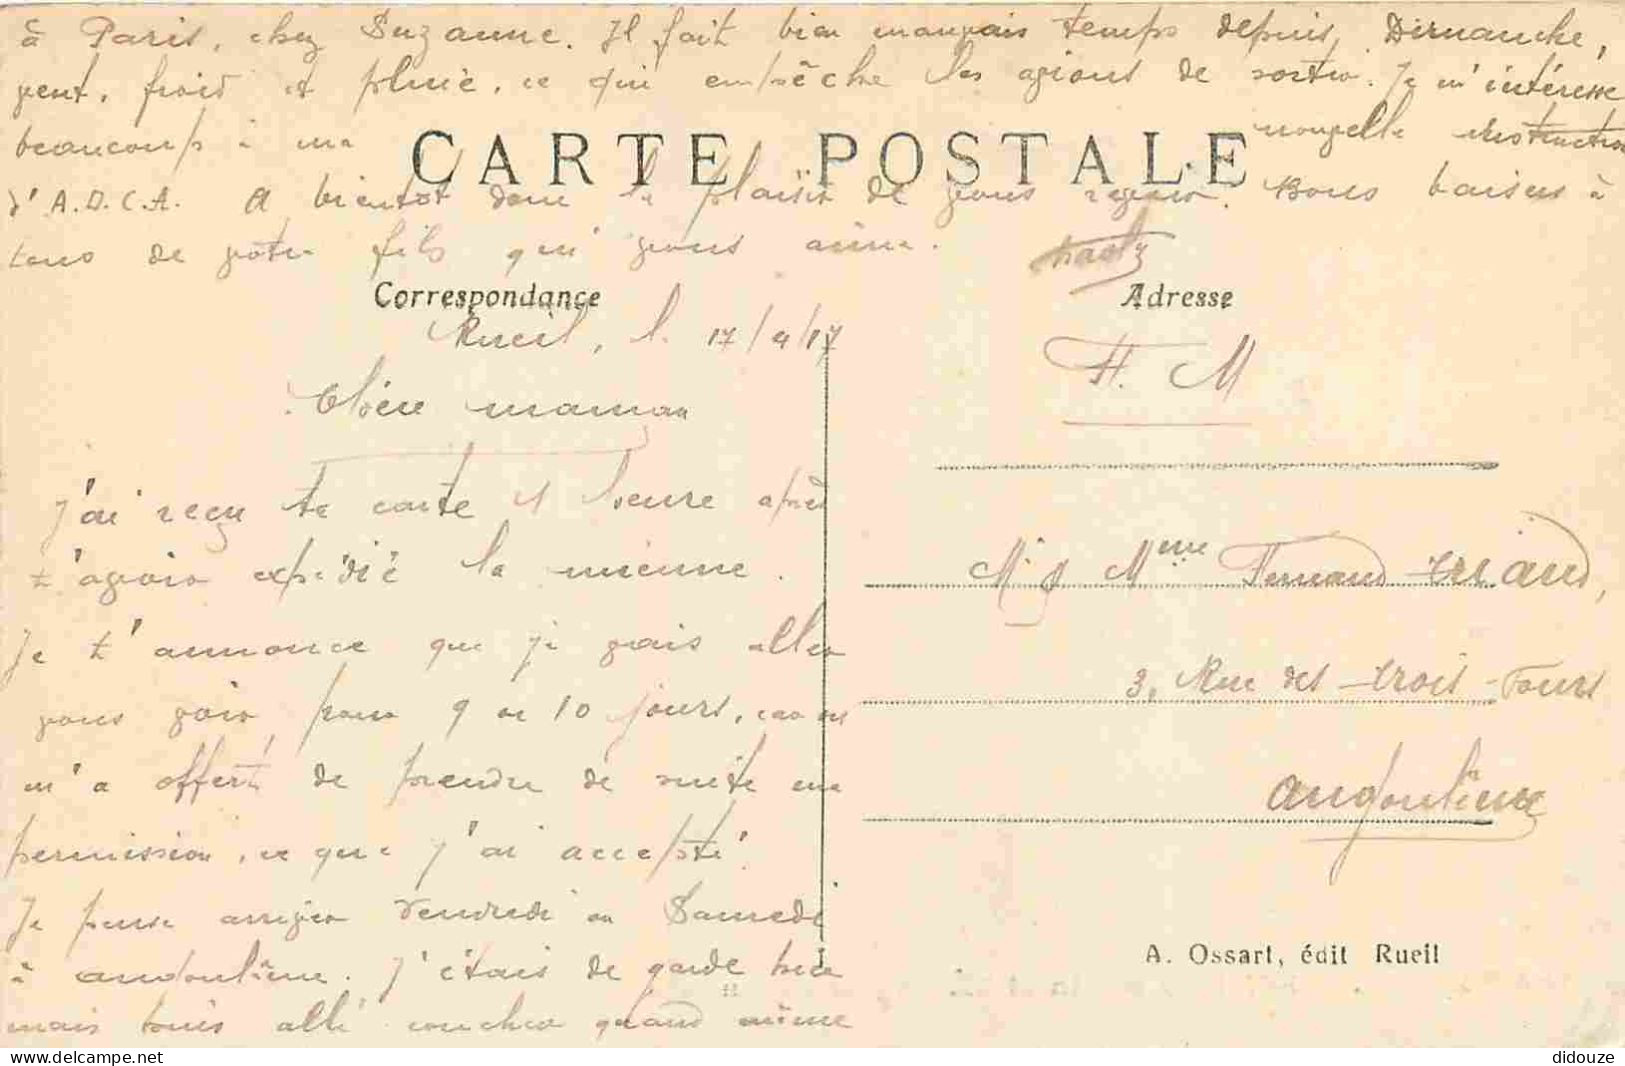 à Paris, chez Suzanne. Il fait bien mauvais temps depuis Dimanche,
vent, froid et pluie, ce qui empêche les avions de sortir. Je m'intéresse
beaucoup à ma nouvelle instruction
d'A.D.C.A. A bientôt donc le plaisir de vous revoir. Bons baisers à
tous de votre fils qui vous aime.
CARTE POSTALE
Correspondance
Adresse
Rueil, le 17/4/17
F. M
Chère maman
J'ai reçu ta carte 1 heure après
t'avoir expédié la mienne.
Je t'annonce que je vais aller
vous voir pour 9 ou 10 jours, car on
m'a offert de prendre de suite ma
permission, ce que j'ai accepté.
Je pense arriver Vendredi ou Samedi
à Angoulême. J'étais de garde hier
mais suis allé coucher quand même
Mr et Mme Fernand
3, Rue des Trois-Fours
Angoulême
A. Ossart, édit Rueil
didouze
www.delcampe.net